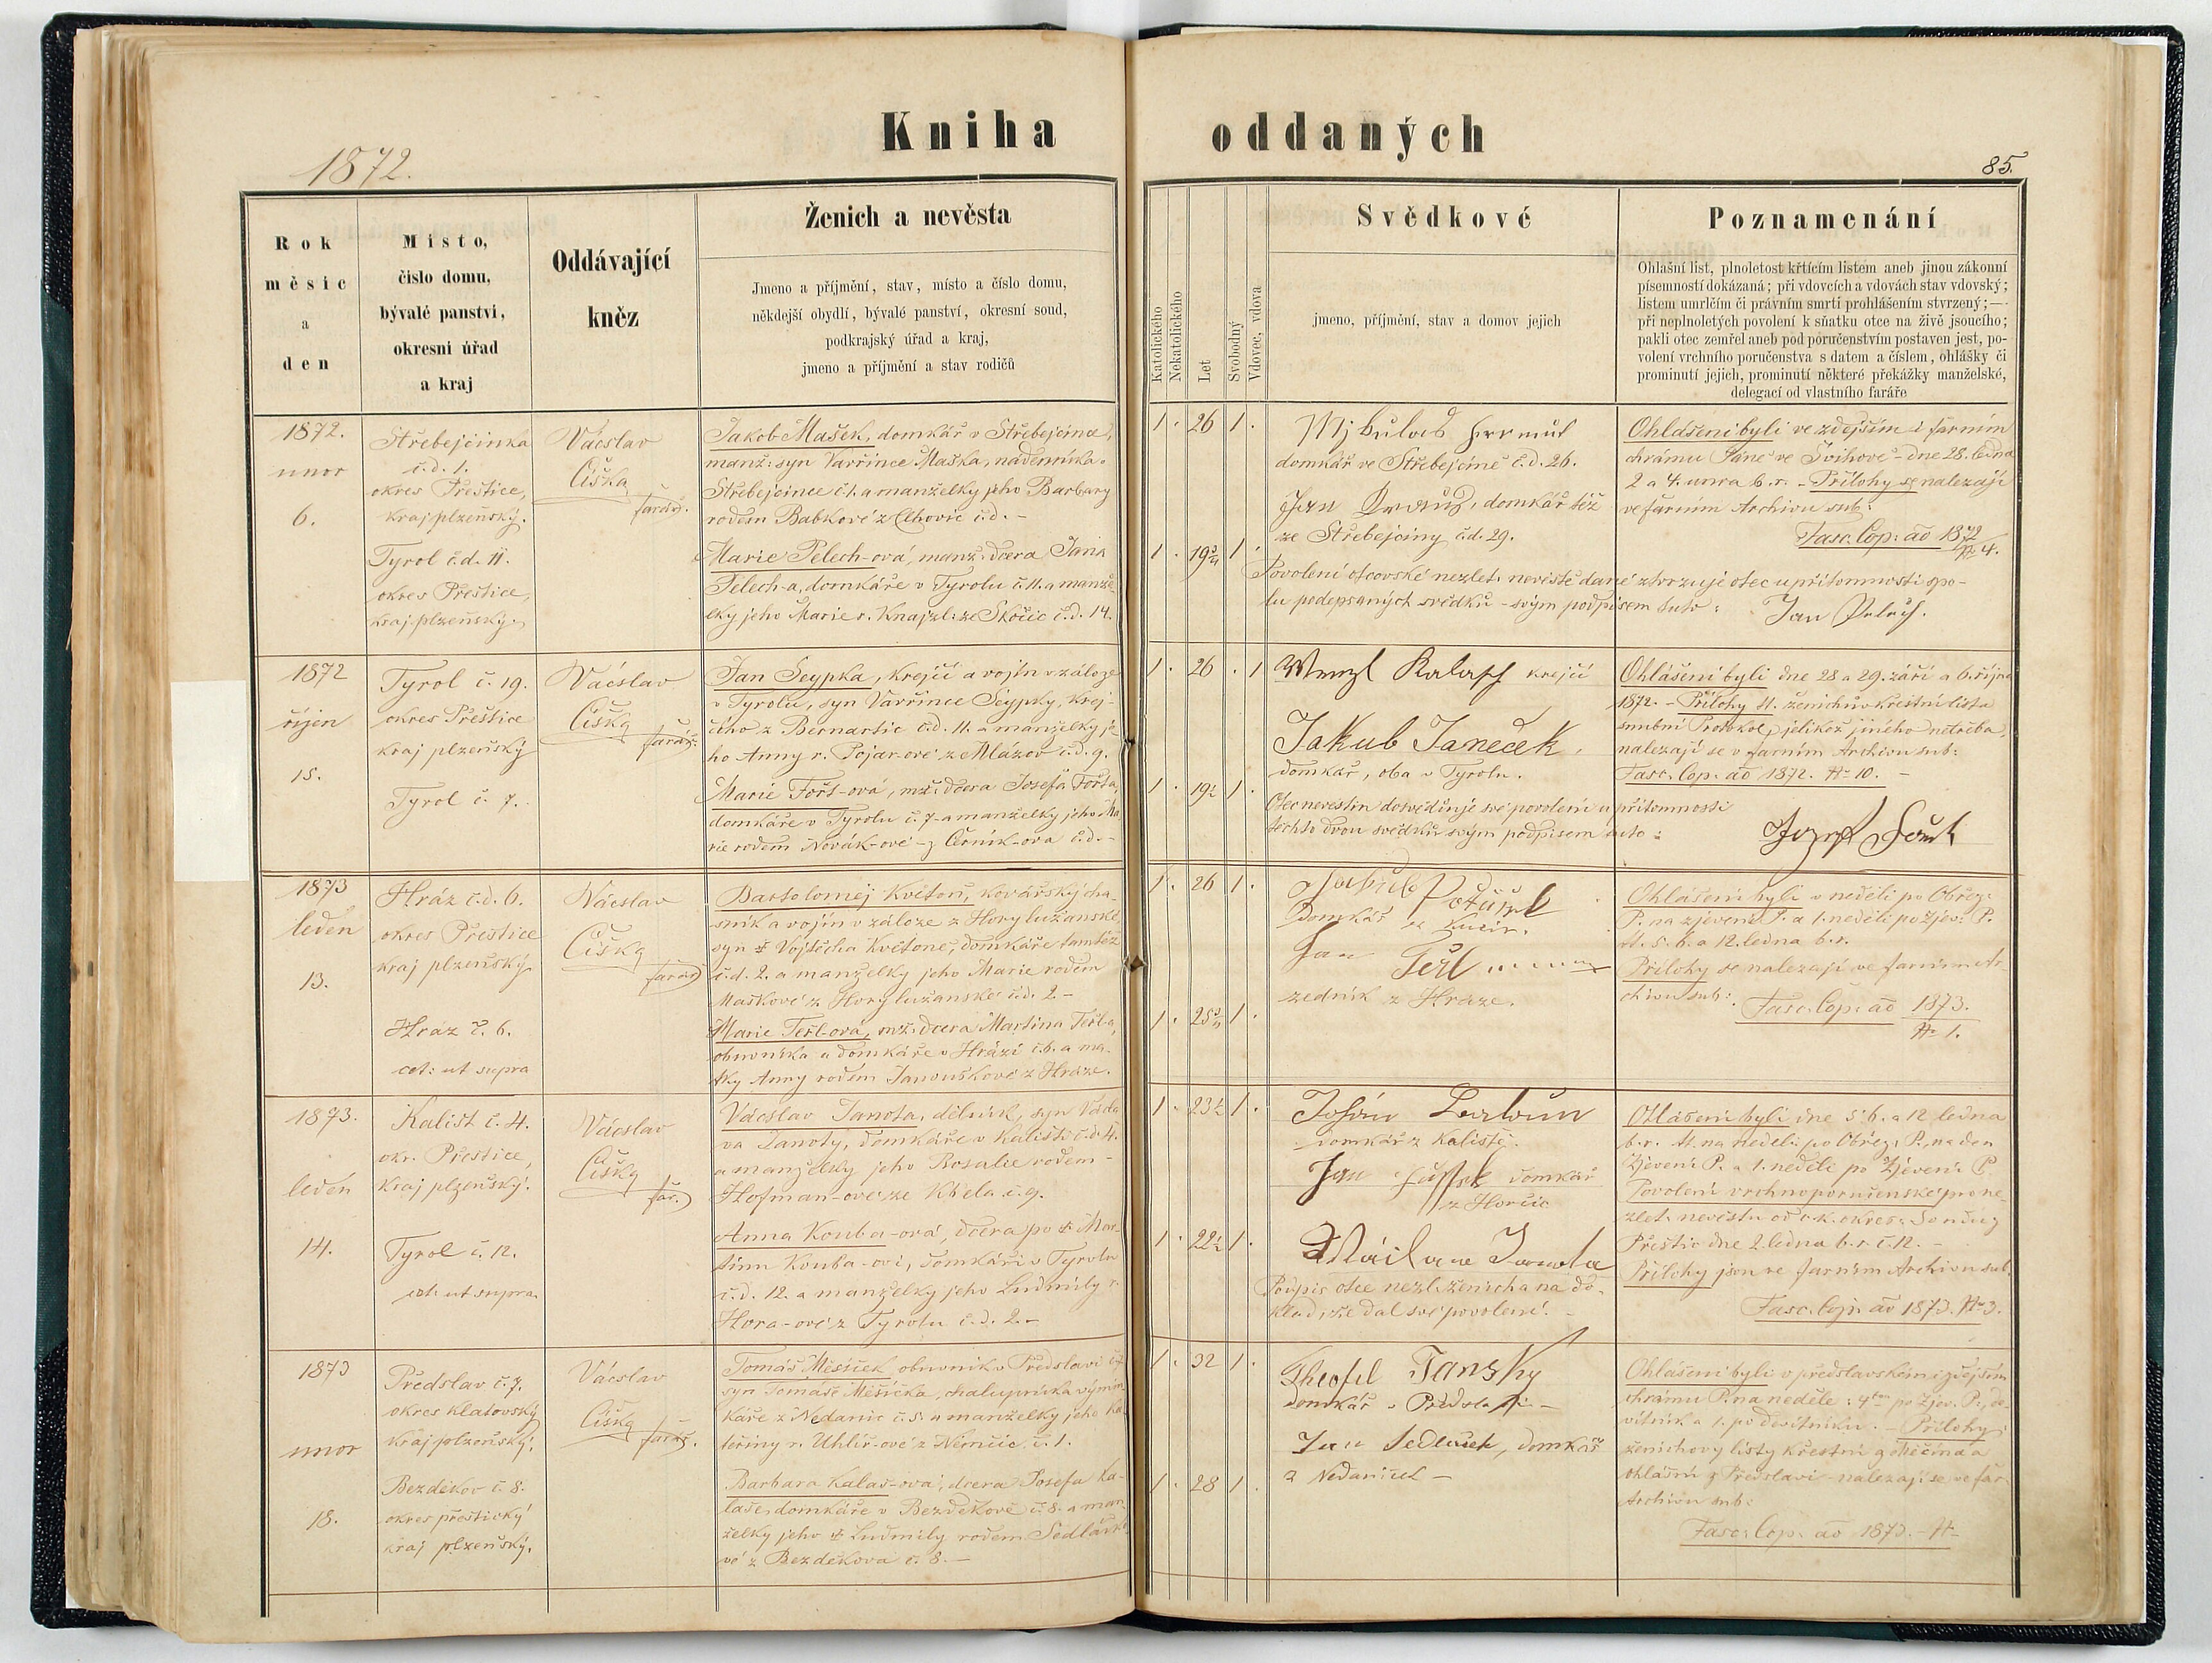 Kniha oddaných
1872.
85.
Rok
měsíc
a
den
Místo,
číslo domu,
bývalé panství,
okresní úřad
a kraj
Oddávající
kněz
Ženich a nevěsta
Jmeno a příjmění, stav, místo a číslo domu,
někdejší obydlí, bývalé panství, okresní soud,
podkrajský úřad a kraj,
jmeno a příjmění a stav rodičů
Katolického
Nekatolického
Let
Svobodný
Vdovec, vdova
Svědkové
jmeno, příjmění, stav a domov jejich
Poznamenání
Ohlašní list, plnoletost křtícím listem aneb jinou zákonní
písemností dokázaná; při vdovcích a vdovách stav vdovský;
listem umrlčím či právním smrti prohlášením stvrzený;—
při neplnoletých povolení k sňatku otce na živě jsoucího;
pakli otec zemřel aneb pod poručenstvím postaven jest, po-
volení vrchního poručenstva s datem a číslem, ohlášky či
prominutí jejich, prominutí některé překážky manželské,
delegací od vlastního faráře
1872.
unor
6.
Střebejčinka
č.d. 1.
okres Přeštice,
kraj plzeňský.
Tyrol č.d. 11.
okres Přeštice,
kraj plzeňský.
Václav
Čiška
farář.
Jakob Mašek, domkář v Střebejčině,
manž: syn Vavřince Maška, nádenníka
Střebejčince č.1. a manželky jeho Barbary
rodem Babkové z Chovic č.d. -
Marie Pelech-ová, manž. dcera Jana
Pelech-a, domkáře v Tyrolu č. 11. a manže-
lky jeho Marie r. Knajzl: ze Skočic č.d. 14.
1 . 26 1 .
1 . 19 3/4 1 .
domkář ve Střebejčině č.d. 26.
Jan, domkář též
ze Střebejčiny č.d. 29.
Povolení otcovské nezlet. nevěstě dané ztvrzuje otec u přítomnosti spo-
lu podepsaných svědků - svým podpisem tuto: Jan Pelech.
Ohlášeni byli ve zdejším i farním
chrámu Páně ve Švihově - dne 28. ledna
2 a 4. unora b.r. - Přílohy se nalezají
ve farním Archivu sub:
Fasc. Cop: ad 1872
N 4.
1872
říjen
15.
Tyrol č. 19.
okres Přeštice
kraj plzeňský
Tyrol č. 7.
Václav
Čiška
farář.
Jan Seypka, krejčí a vojín v záloze
v Tyrolu, syn Vavřince Seypky, krej-
čího z Bernartic č.d. 11. a manželky je-
ho Anny r. Pojar-ové z Mlázov č.d. 9.
Marie Fořt-ová, mž. dcera Josefa Fořta,
domkáře v Tyrolu č. 7 a manželky jeho Ma-
rie rodem Novák-ové - z Černík-ova č.d. -
1 . 26 . 1
1 . 19 1 .
Wenzl Kalasch krejčí
Jakub Janeček,
domkář, oba v Tyrolu.
Otec nevěstin dosvědčuje své povolení u přítomnosti
těchto dvou svědků svým podpisem tuto: Jozef Foršt
Ohlášeni byli dne 28 a 29. září a 6. října
1872. - Přílohy tt. ženichův křestní list a
snubní Protokol, jelikož jiného netřeba,
nalezají se v farním Archivu sub:
Fasc. Cop: ad 1872. N 10. -
1873
leden
13.
Hráz č.d. 6.
okres Přeštice
kraj plzeňský
Hráz č. 6.
cet: ut supra
Václav
Čiška
farář
Bartolomej Květoň, kovářský cha-
sník a vojín v záloze z Hory lužanské,
syn † Vojtěcha Květoně, domkáře tamtéž
č.d. 2. a manželky jeho Marie rodem
Maškové z Hory lužanské č.d. 2 -
Marie Teřl-ová, mž. dcera Martina Teřla,
obuvníka a domkáře v Hrázi č. 6. a ma-
tky Anny rodem Janouškové z Hráze.
1 . 26 1 .
1 . 25 3/4 1 .
Jakub
domkář
Jan Teřl
zedník z Hráze.
Ohlášeni byli v neděli po Obřez:
P. na zjevení P. a 1. neděli po zjev: P.
tt. 5. 6. a 12. ledna b.r.
Přílohy se nalezají ve farním Ar-
chivu sub: Fasc. Cop: ad 1873.
N 1.
1873.
leden
14.
Kalist č. 4.
okr. Přeštice,
kraj plzeňský.
Tyrol č. 12.
cet: ut supra
Václav
Čiška
far.
Václav Janota, dělník, syn Václa-
va Janoty, domkáře v Kališti č.d. 4.
a manželky jeho Rosalie rodem -
Hofman-ové ze Křela č. 9.
Anna Kouba-ová, dcera po † Mar-
tinu Kouba-ovi, domkáři v Tyrolu
č.d. 12. a manželky jeho Ludmily r.
Hora-ové z Tyrolu č.d. 2. -
1 . 23 1/2 1 .
1 . 22 1/2 1 .
domkář z Kaliště.
Jan domkář
z Horčic
Václav Janota
Podpis otce nezl. ženicha na dů-
klad, že dal své povolení. -
Ohlášeni byli dne 5. 6. a 12 ledna
b.r. tt. na neděli po Obřez: P., na den
Zjevení P. a 1. neděli po Zjevení P.
Povolení vrchnoporučenské pro ne-
zlet. nevěstu od c.k. okres: Soudu z
Přeštic dne 2 ledna b.r. č. 12. -
Přílohy jsou ve farním Archivu sub.
Fasc. Cop: ad 1873. N 3.
1873
unor
18.
Předslav č. 7.
okres klatovský
kraj plzeňský,
Bezděkov č. 8.
okres přeštický
kraj plzeňský.
Václav
Čiška
farář.
Tomáš Měsíček obuvník v Předslavi č. 7
syn Tomáše Měsíčka, chalupníka výmin-
káře z Nedanic č. 5. a manželky jeho Ka-
teřiny r. Uhlíř-ové z Němčic, č. 1.
Barbara Kalaš-ová, dcera Josefa Ka-
laše, domkáře v Bezděkově č. 8. a man-
želky jeho † Ludmily rodem Sedlářko-
vé z Bezděkova č. 8. -
1 . 32 1 .
1 . 28 1 .
Theofil Tansky
domkář v Předslavi -
Jan Sedlaček, domkář
z Nedaniček -
Ohlášeni byli v předslavském i zdejším
chrámu P. na neděle: 4. po Zjev. P., de-
vítník a 1. po devítníku. - Přílohy:
ženichovy listy křestní z Měčína a
ohlášní z Předslavi - nalezají se ve far.
Archivu sub:
Fasc: Cop: ad 1873. - N